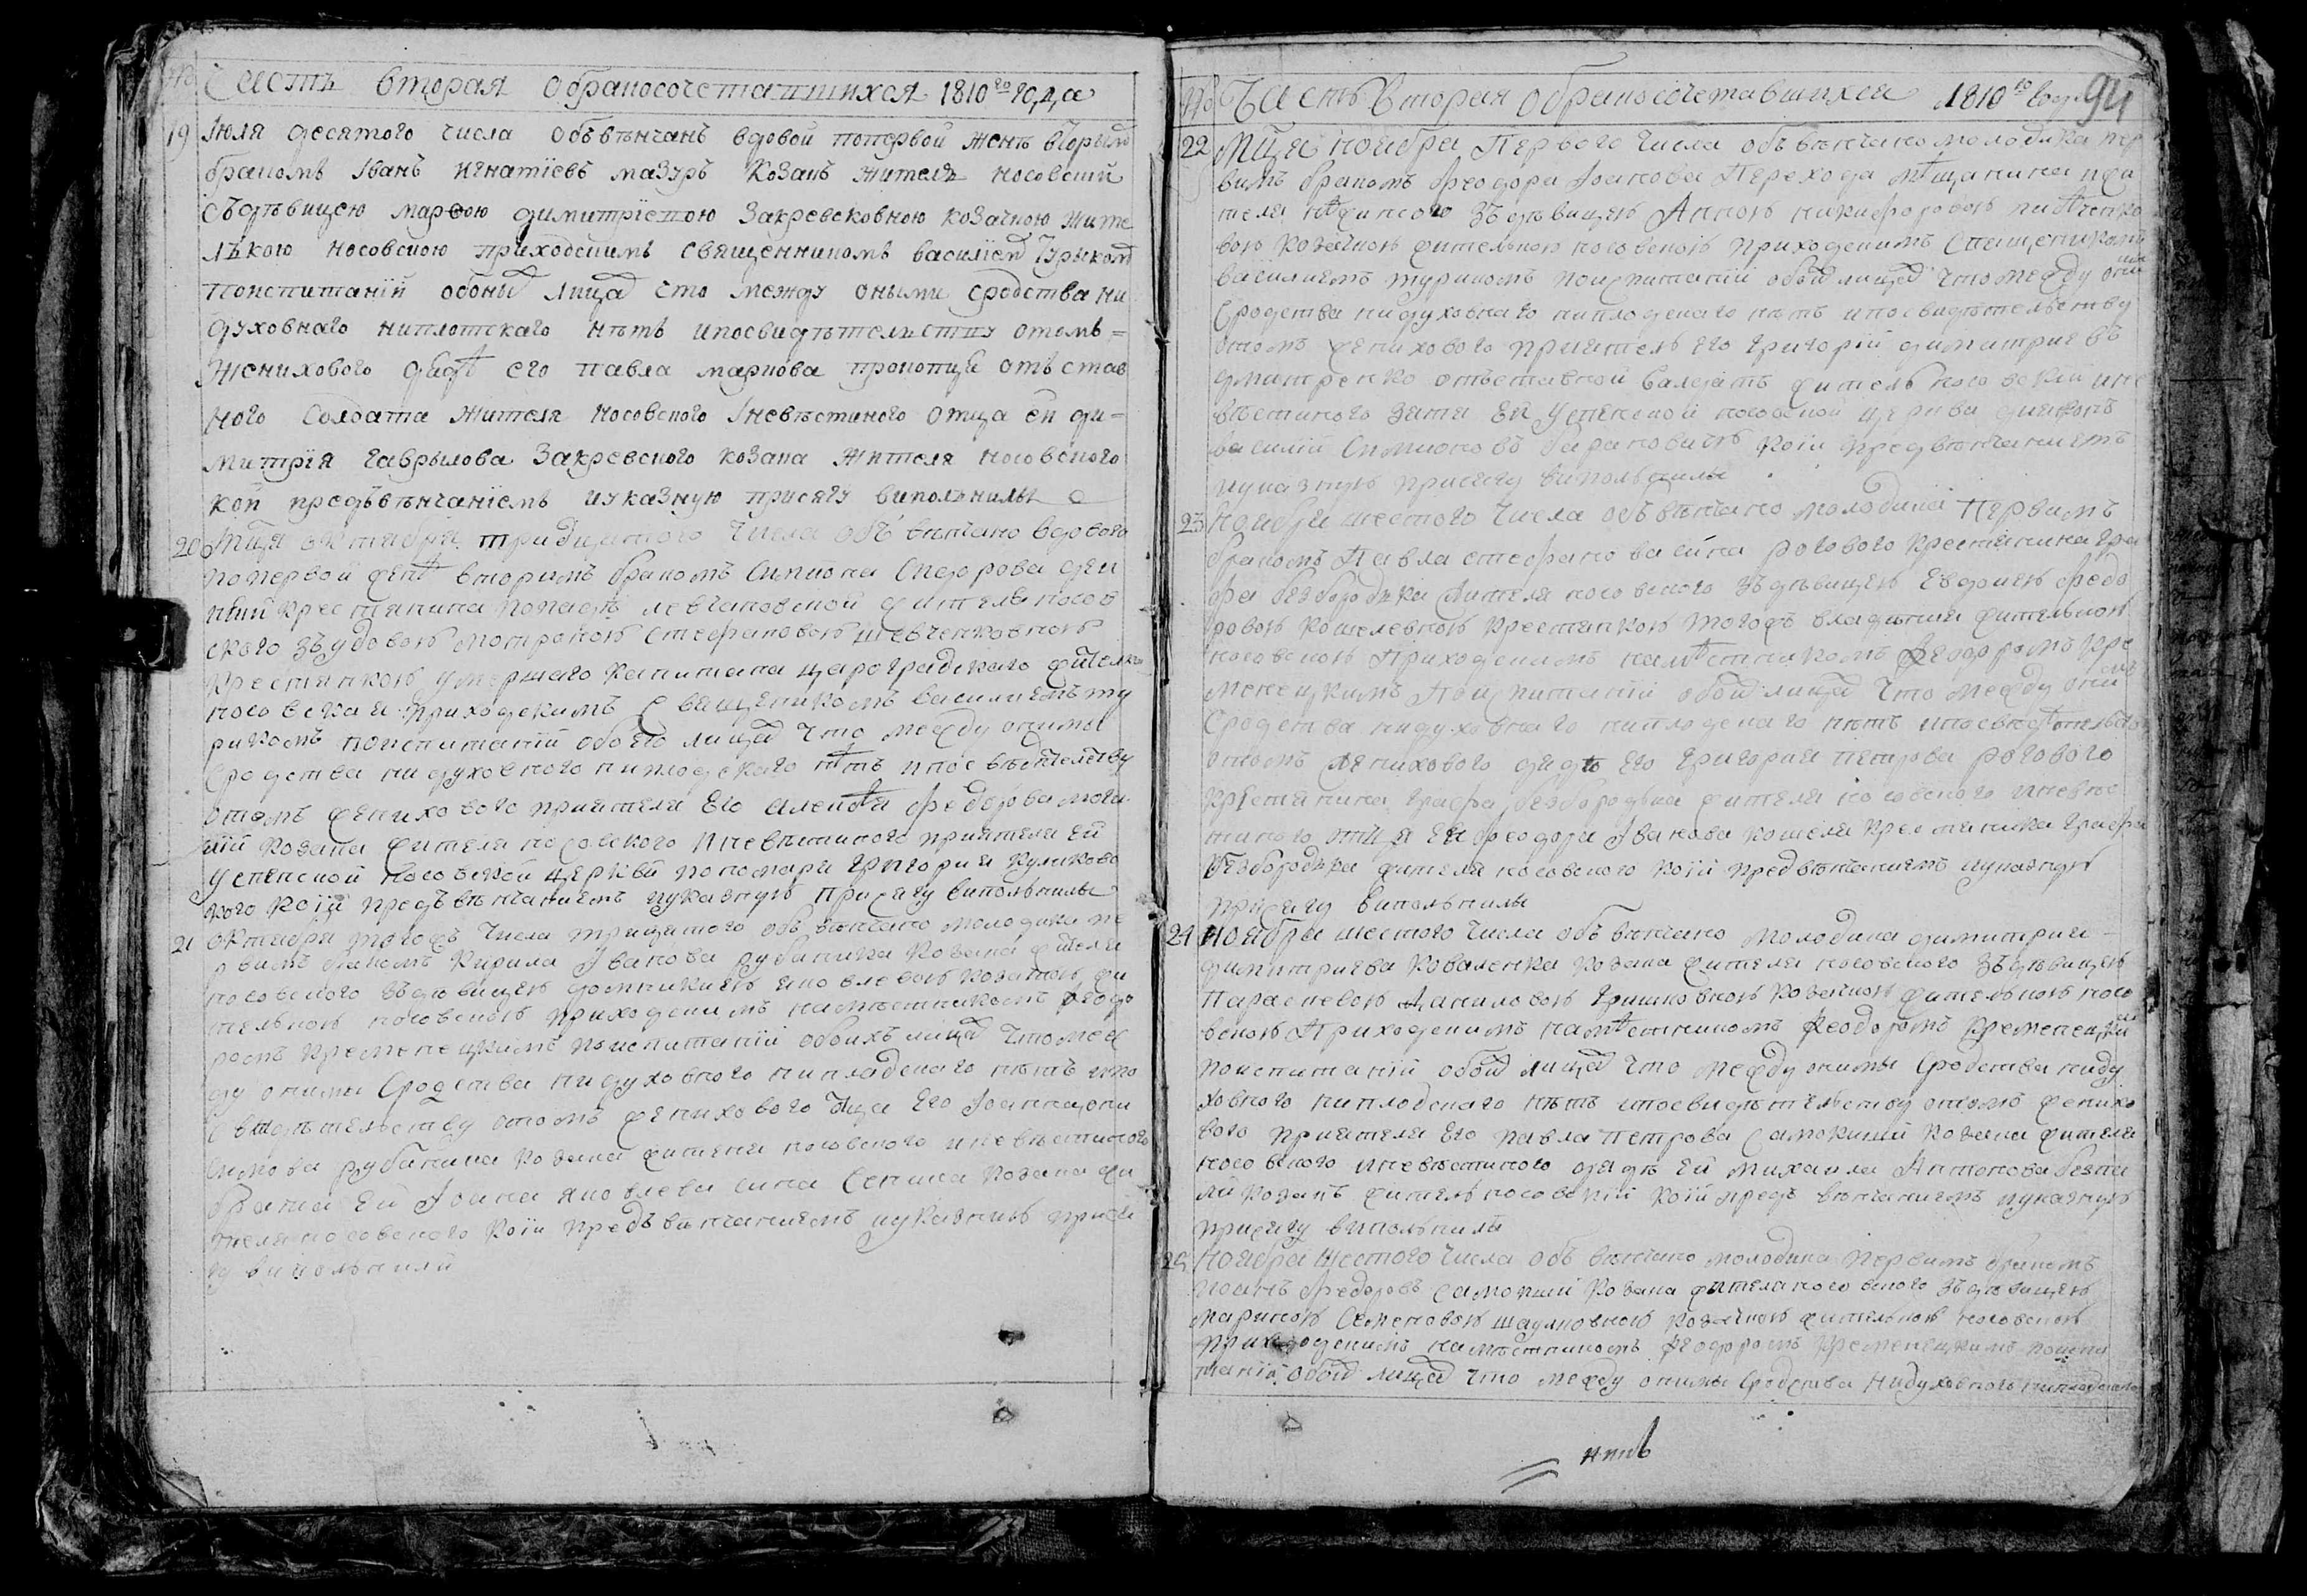 № Часть вторая обракосочетавшихся 1810го года
19 Июля десятого числа обвѣнчанъ вдовой попервой женѣ вторымъ
бракомъ Іванъ Игнатіевъ мазуръ козакъ житель носовский
съдѣвицею марѳою димитріевою закревсковною козачкою жите
лѣкою носовскою приходскимъ священникомъ василіем турыком
поиспитаній обоих лицъ что между оными сродства ни
духовнаго ниплотскаго нѣтъ ипосвидѣтельству отомъ=
женихового дядѣ его павла маркова прокопця отъстав
ного солдата жителя носовского Іневѣстиного отца ей ди=
митрія гаврылова закревского козака жителя носовского
кои предъвѣнчаніемъ иуказную присягу виполънилы
20 Мця октября тридцятого числа обвѣнчано вдового
попервой женѣ вторимъ бракомъ Симиона Сидорова
крестянина левчановской жителя носов
ского зъудовою мотроною стефановою шевченковною
крестянкою умершаго капитана цароградского жителк
носовская приходскимъ священикомъ василиемъ ту
рикомъ поиспитаній обоего лица что между онимы
сродства нидуховного ниплодскаго нѣтъ ипосвѣдителству
отомъ женихового приятеля его алексѣя федорова
козака жителя носовского иневѣстиного приятеля ей
успенской носовской церкви пономаря григория куликовс
кого кои предъвѣнчаниемъ иуказную присягу виполънилы
21 октября тогожъ числа трицятого обвѣнчано молодика пе
рвимъ бракомъ Кирила Іванова рубаника козака жителя
носовского зъдѣвицею домникиею яковлевою козачкою жи
телькою носовскою приходскимъ намѣстникомъ Феодо
ромъ кременецкимъ поиспитаній обоихъ лицъ что меж
ду онимы сродства нидуховного нипладскаго нѣтъ ипо
свидѣтельству отомъ женихового отца его Іоанна они
симова рубаника козака жителя носовского иневѣстиного
брата ей Іоана яковлева сина Сеника козака жи
теля носовского кои предъвѣнчаниемъ иуказную прися
гу виполънили
№ Часть Вторая обракосочетавшихся 1810го году 94
22 Мця ноября Первого числа объвѣнчано молодика пер
вимъ бракомъ Феодора Іоанова Перехода мѣщанина
теля нѣжинского зъдѣвицею Анною никифоровою
вою козачкою жителькою носовскою приходскимъ Священикомъ
василиемъ туриком поиспитаній обоих лицъ что между оним
Сродства нидуховнаго ниплодскаго нѣтъ ипосвидѣтельству
отомъ женихового приятель его григорій димитриевъ
дмитренко отъставной салдатъ житель носовскій ине
вѣстиного зятя ей успенской носовской церкви дияконъ
василий Симионовъ барановичъ кои предвѣнчаниемъ
иуказную присягу виполънилы
23 Ноября шестого числа объвѣнчано молодика Первимъ
бракомъ Павла стефанова сина рогового крестянина гра
фа безбородка жителя носовского зъдѣвицею Евдокиею федо
ровою кошелевною крестянкою тогожъ владѣния жителькою
носовскою Приходскимъ намѣстникомъ Феодоромъ кре
менецкимъ Поиспитаній обоих лицъ что между оними
Сродства нидуховнаго ниплодскаго нѣтъ ипосвѣдѣтельст
отомъ женихового дядѣ его григория петрова рогового
крестянина графа безбородъка жителя носовского иневѣс
тиного отця ей феодора Іванова кошеля крестянина графа
безбородъка жителя носовского кои предвѣнчаниемъ иуказную
присягу виполънилы
24 Ноября шестого числа объвѣнчано молодика димитрия
димитриева коваленка козака жителя носовского зъдѣвицею
Параскевою Даниловою гришковною козачкою жителькою носо
вскою Приходскимъ намѣстникомъ Феодоромъ кременецким
поиспитаній обоих лицъ что между онимы сродства ниду
ховного ниплодскаго нѣтъ ипосвидѣтельству отомъ женихо
вого приятеля его павла петрова Самокиши козака жителя
носовского иневѣстиного дядѣ ей михаила Антонова
козакъ житель носовский кои предъвѣнчаниемъ иуказную
присягу виполънилы
25 Ноября шестого числа объвѣнчано молодика первимъ бракомъ
Иоанъ Федоровъ самокиш козака жителя носовского зъдѣвицею
мариною Семеновою козачкою жителькою носовскою
приходскимъ намѣстникомъ Феодоромъ кременецкимъ поиспи
таній обоих лицъ что между онимы сродства нидуховного ниплодского
нѣтъ